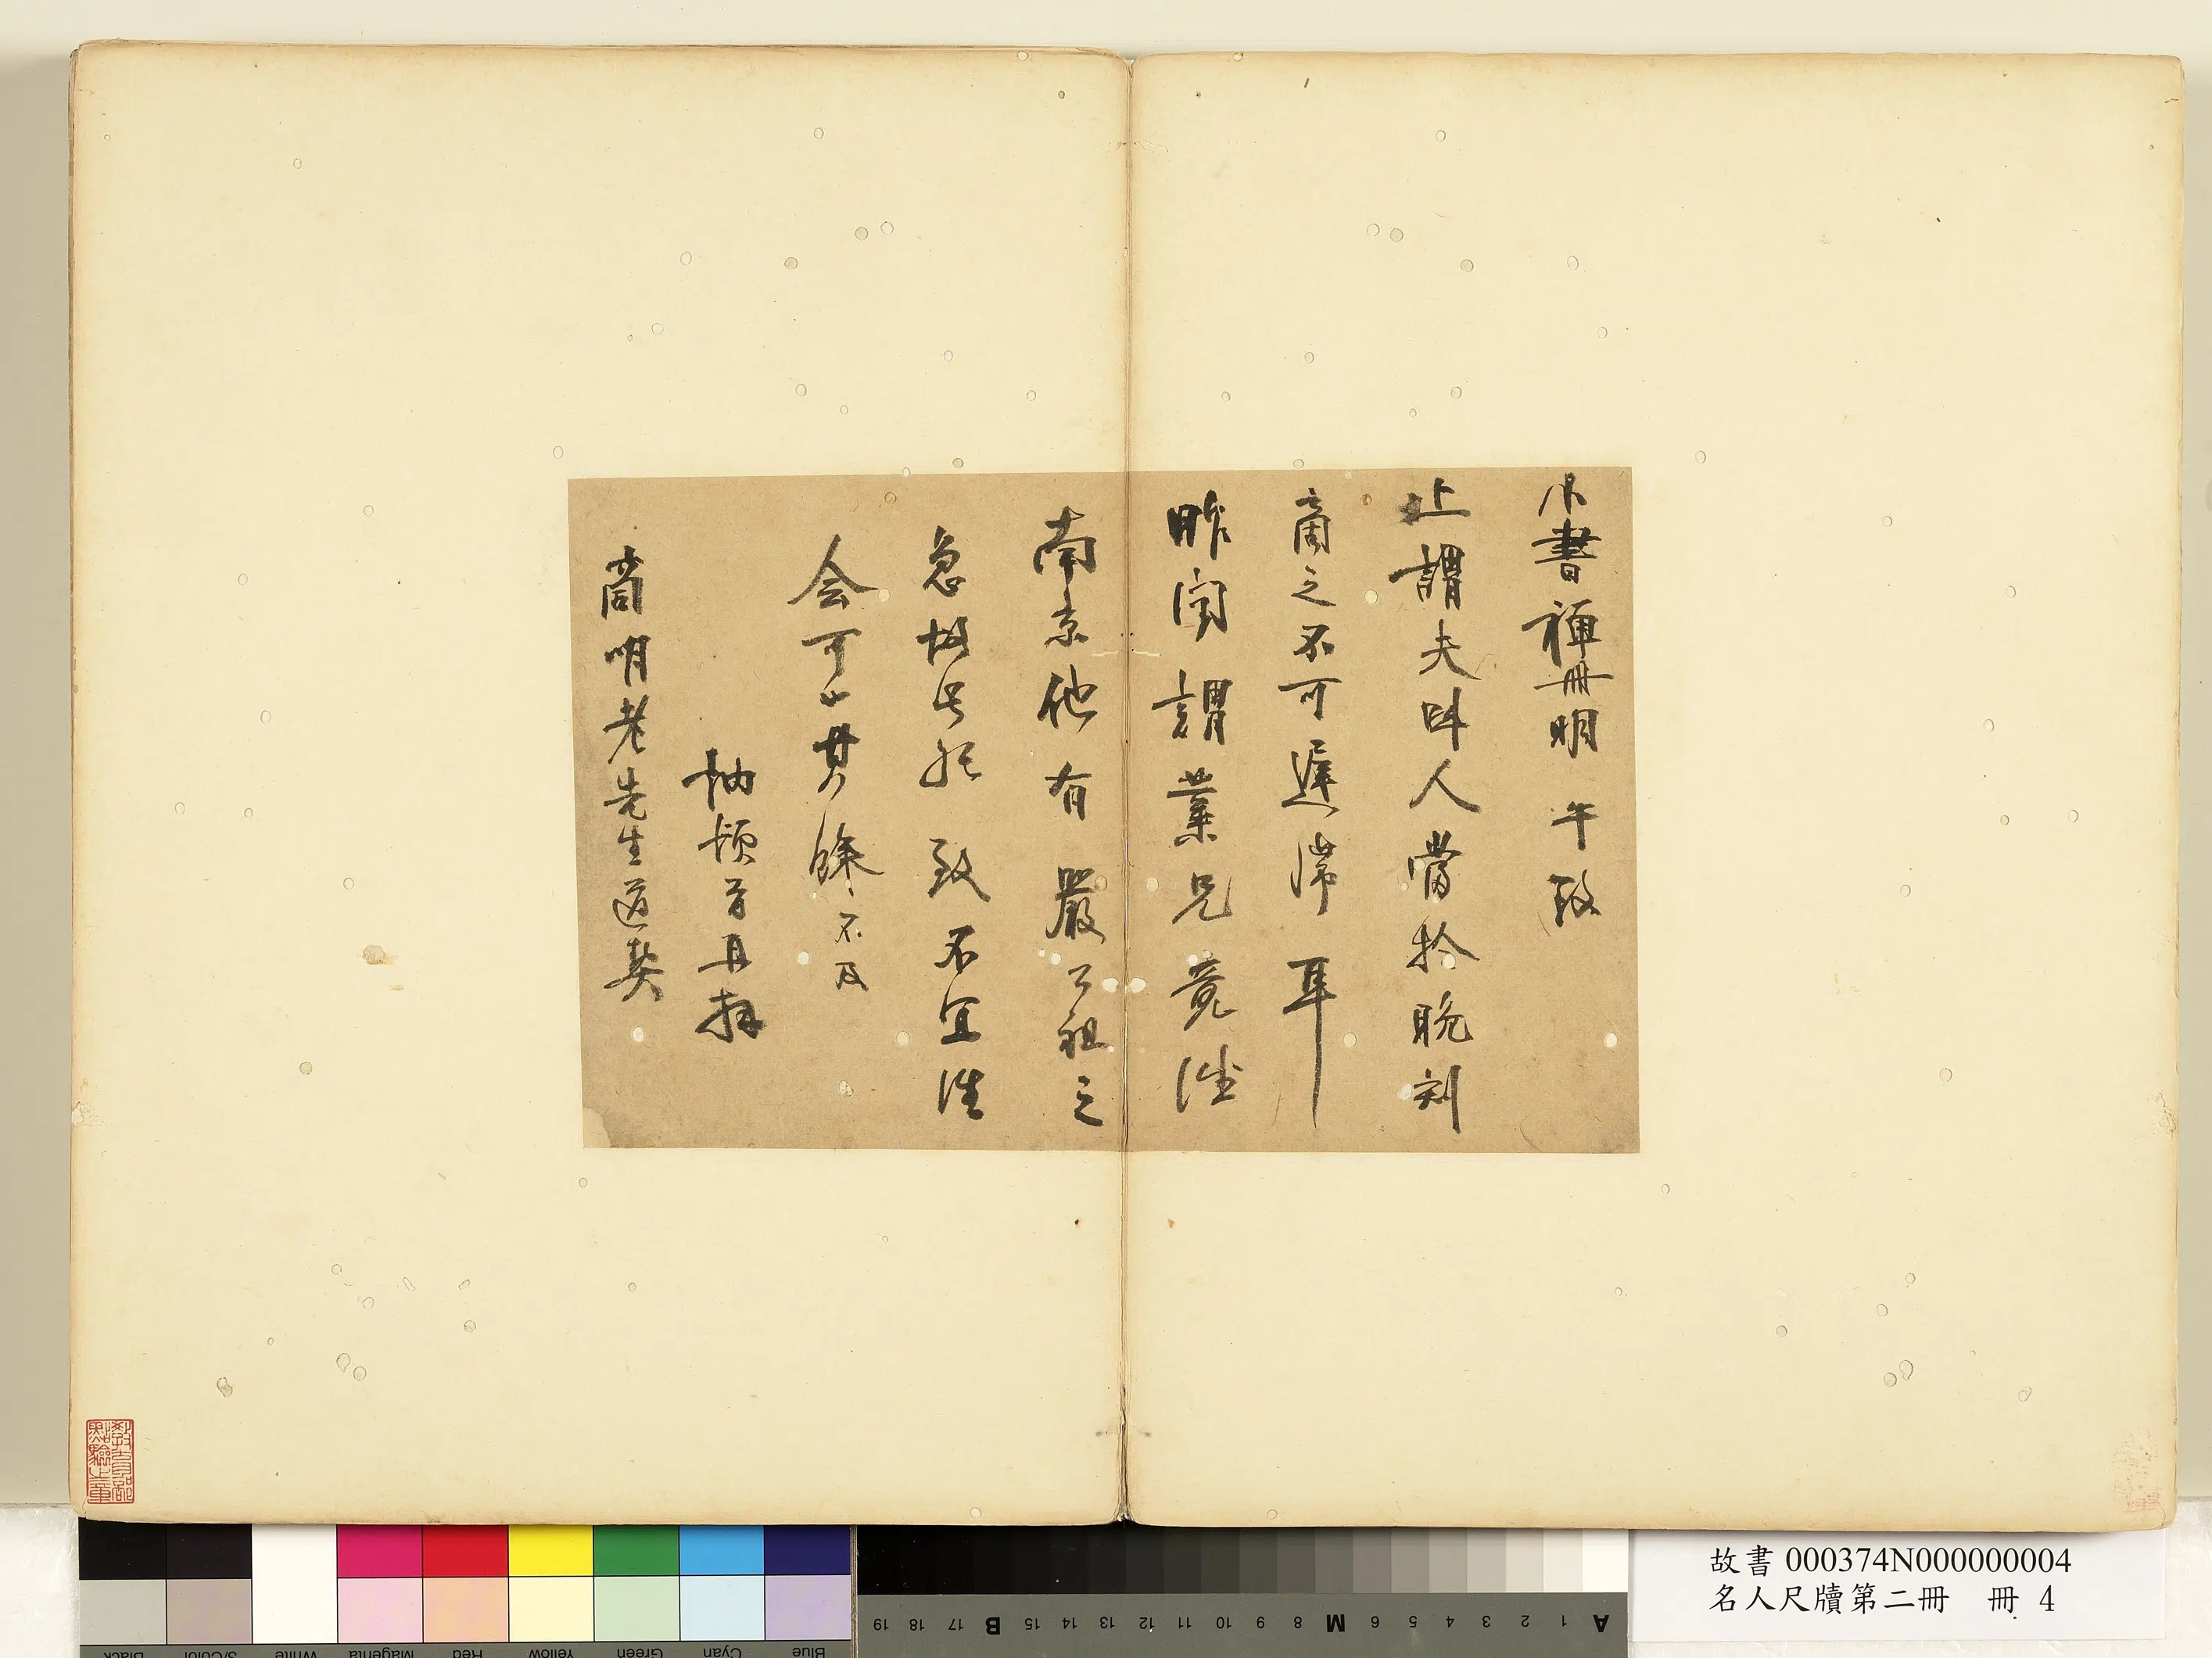 小書禪冊明午致
上謂夫叫人當於晚刻
商之不可遲滯耳
昨聞謂業兄竟往
南京他有嚴公祖之
急故
致不宜往
会可
貫餘不及
岫頓首再拜
商明老先生道契
教育部點驗之章
故書 000374N000000004
名人尺牘第二冊 冊 4
A 1 2 3 4 5 6 M 8 9 10 11 12 13 14 15 B 17 18 19
Blue Cyan Green Yellow Red Magenta White 3/Color Black